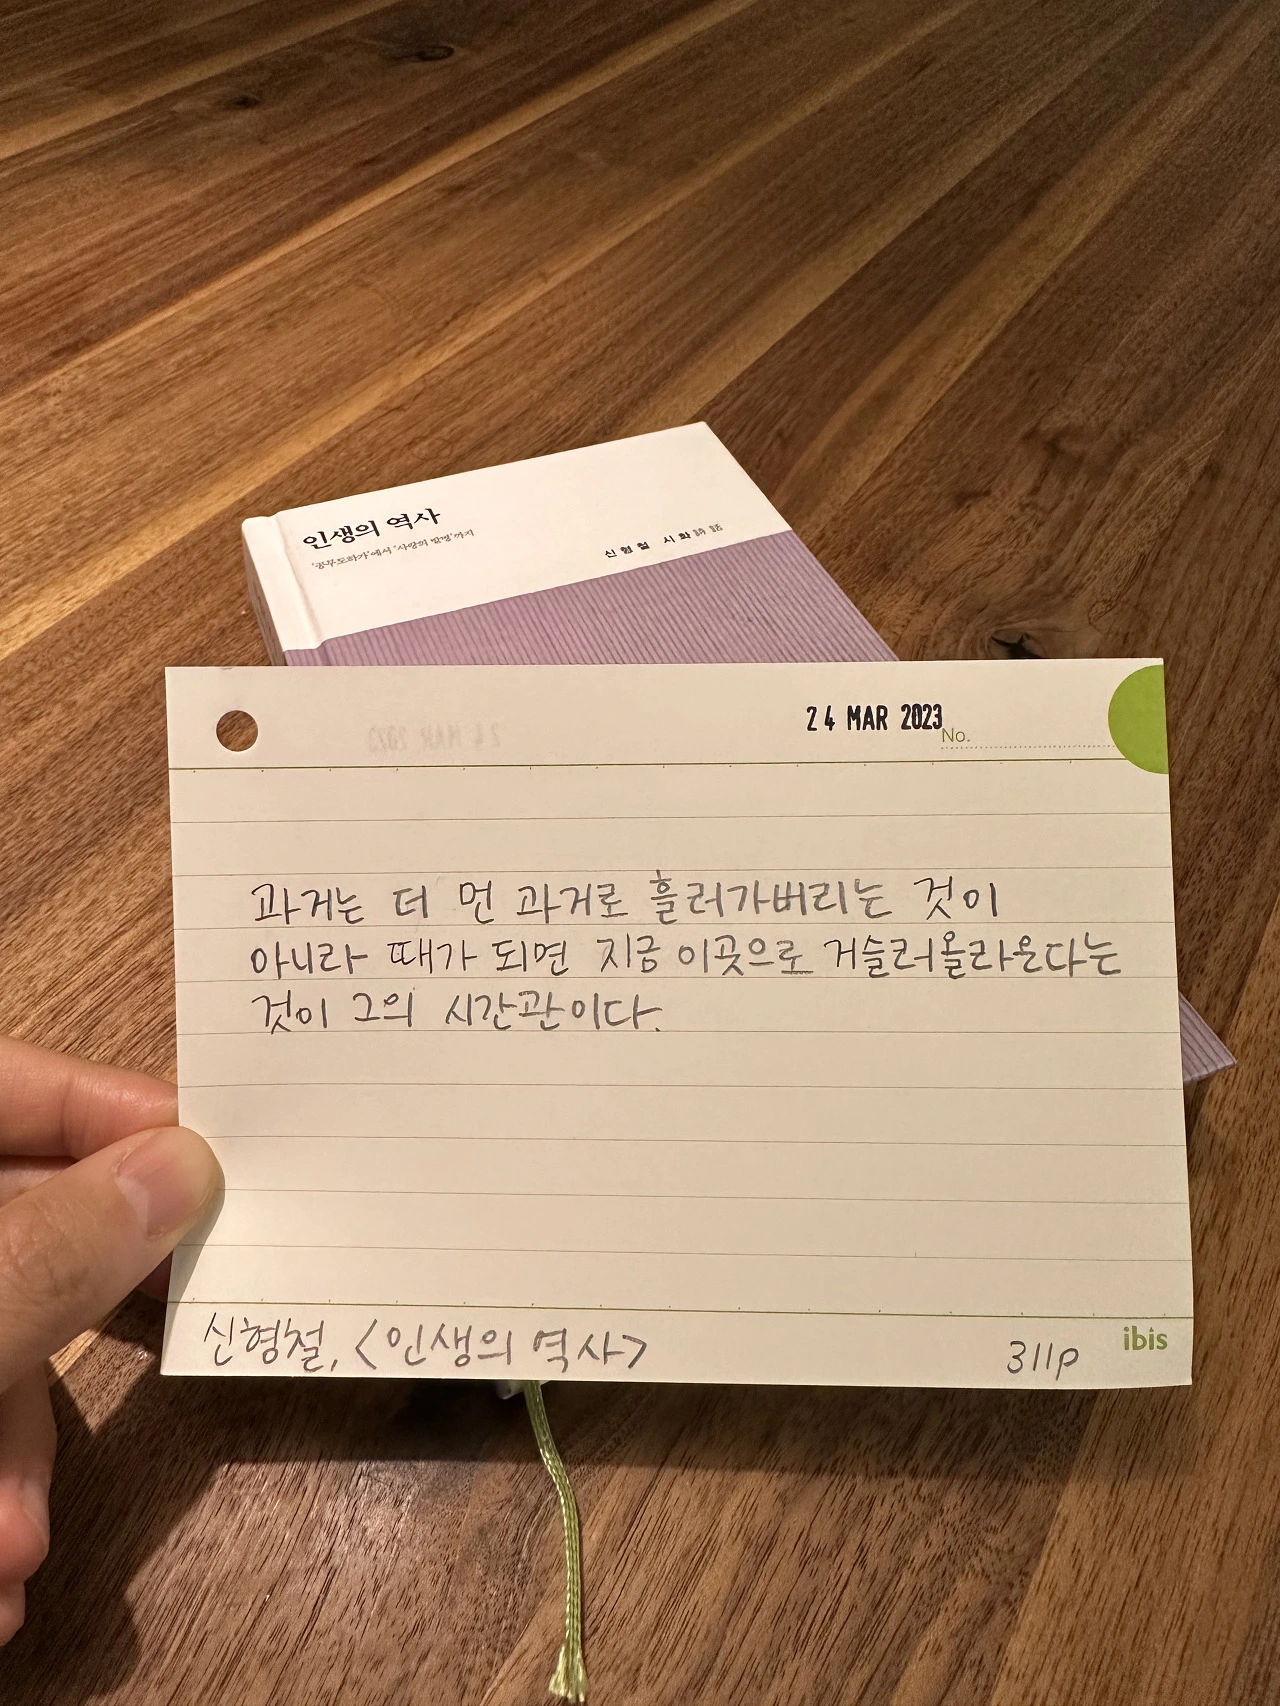 인생의 역사
'공무도하가'에서 '사랑의 발명'까지
신형철 시화詩話
24 MAR 2023
No.
과거는 더 먼 과거로 흘러가버리는 것이
아니라 때가 되면 지금 이곳으로 거슬러올라온다는
것이 그의 시간관이다.
신형철, <인생의 역사>
311p
ibis